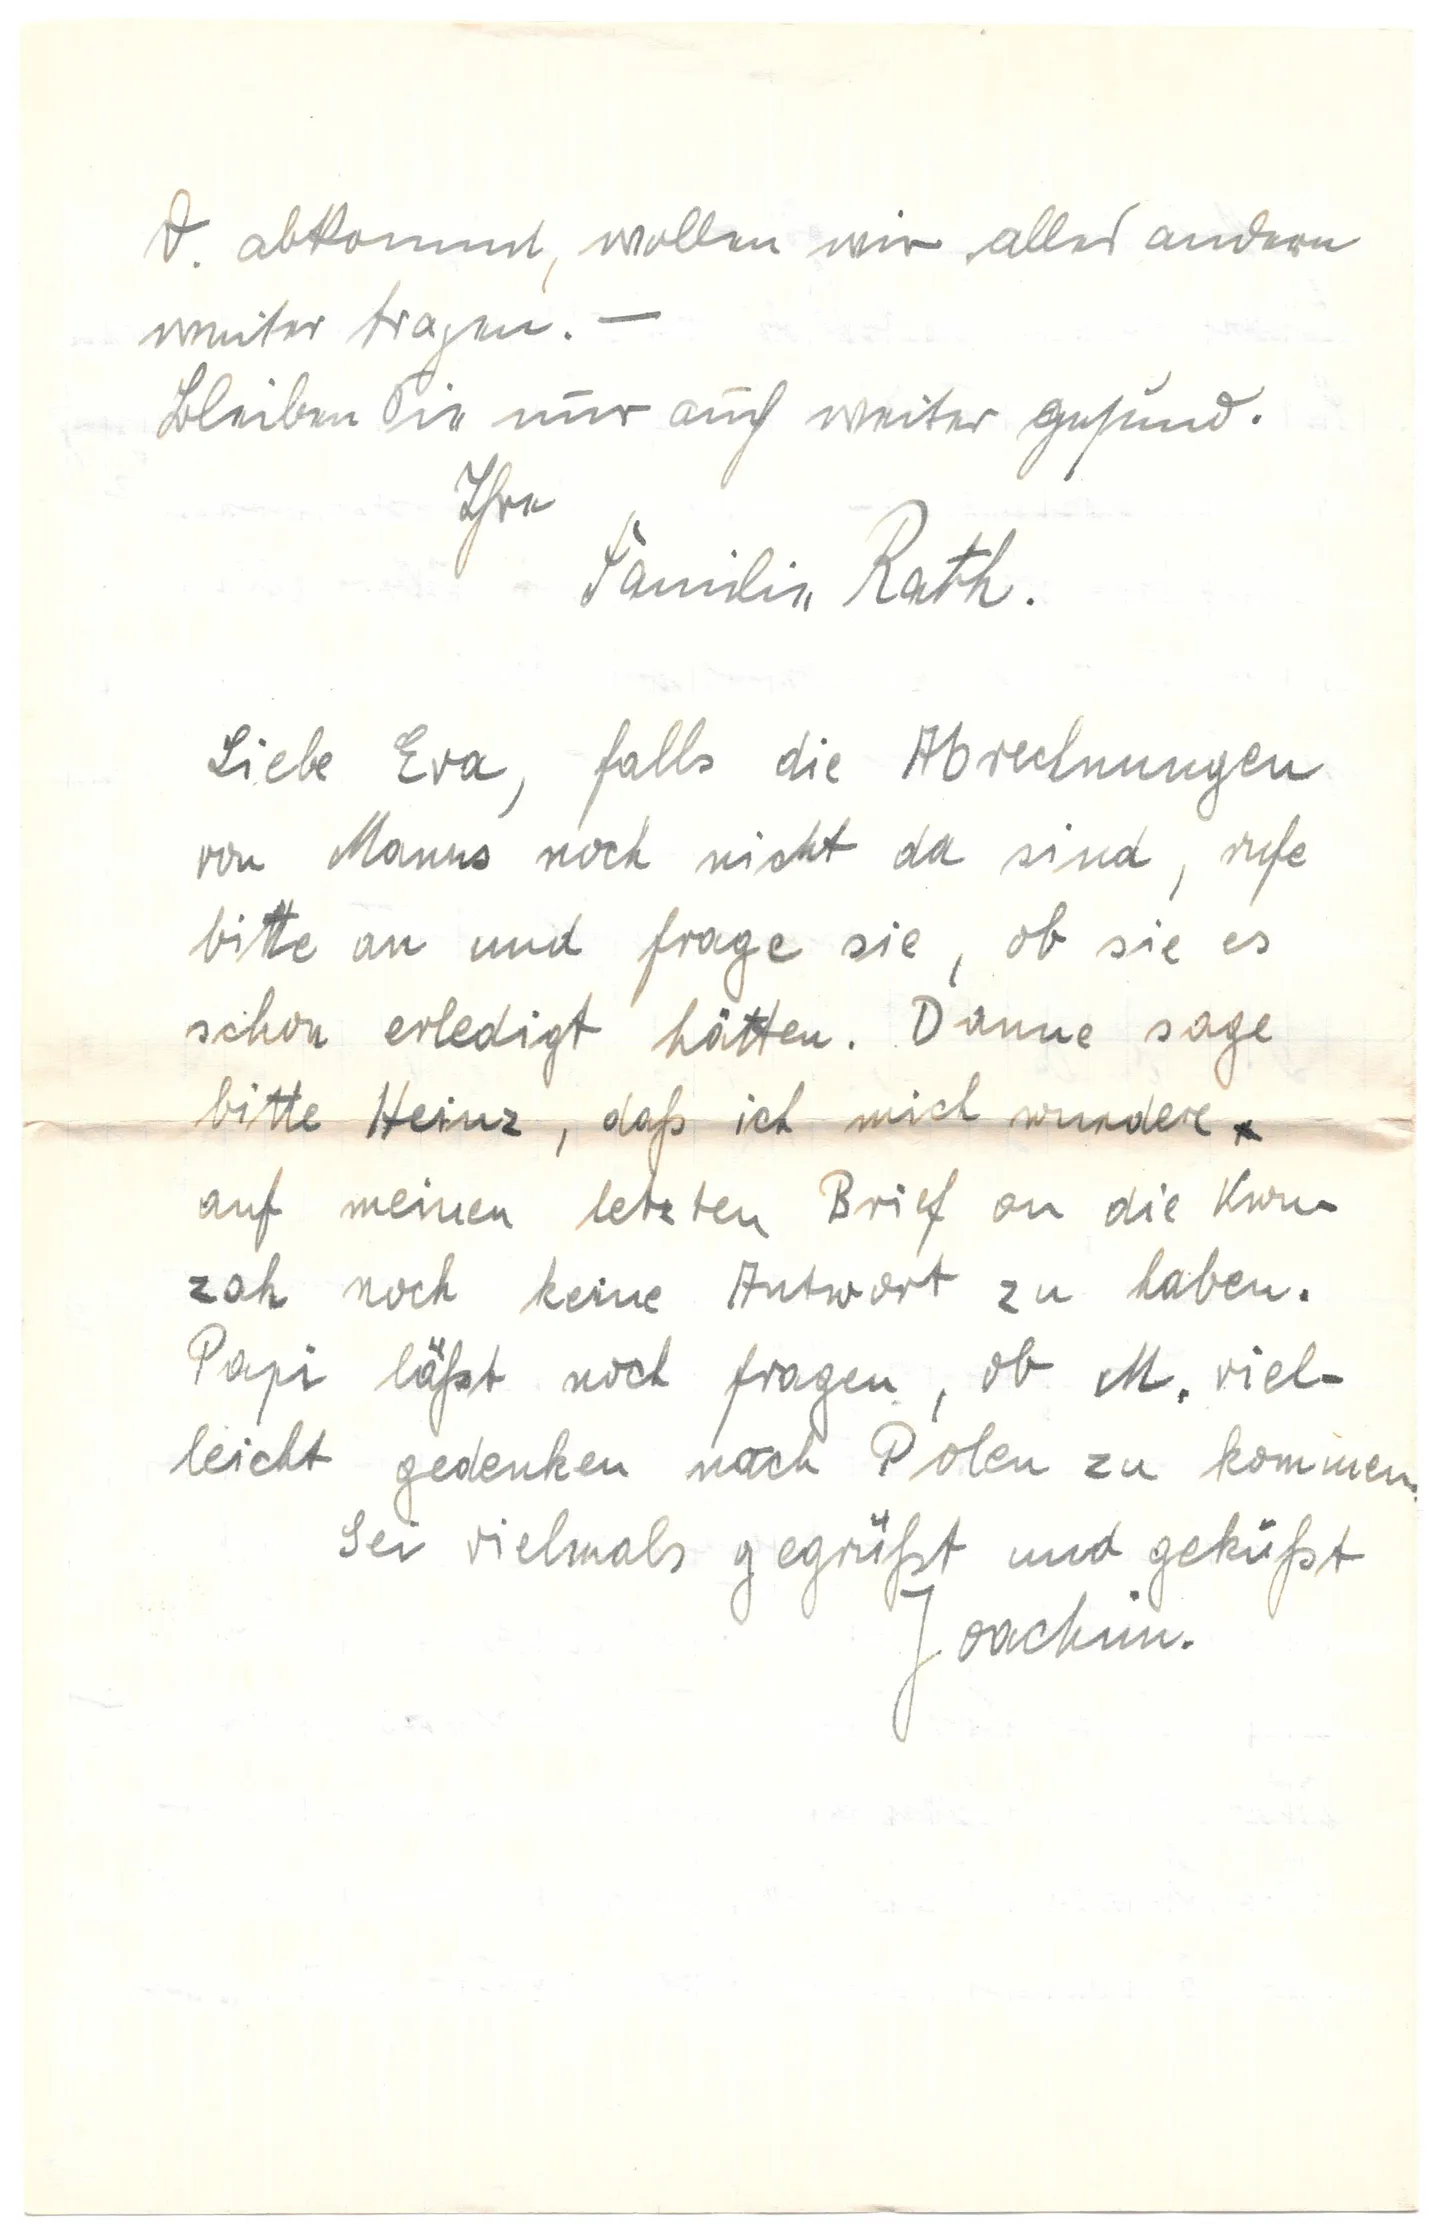 D. abkommt, wollen wir alles andere
weiter tragen. —
Bleiben Sie nur auch weiter gesund.
Ihre
Familie Rath.
Liebe Eva, falls die Abrechnungen
von Manus noch nicht da sind, rufe
bitte an und frage sie, ob sie es
schon erledigt hätten. Danne sage
bitte Heinz, daß ich mich wundere
auf meinen letzten Brief an die Kwu-
zah noch keine Antwort zu haben.
Papi läßt noch fragen, ob M. viel-
leicht gedenken nach Polen zu kommen.
Sei vielmals gegrüßt und geküßt
Joachim.